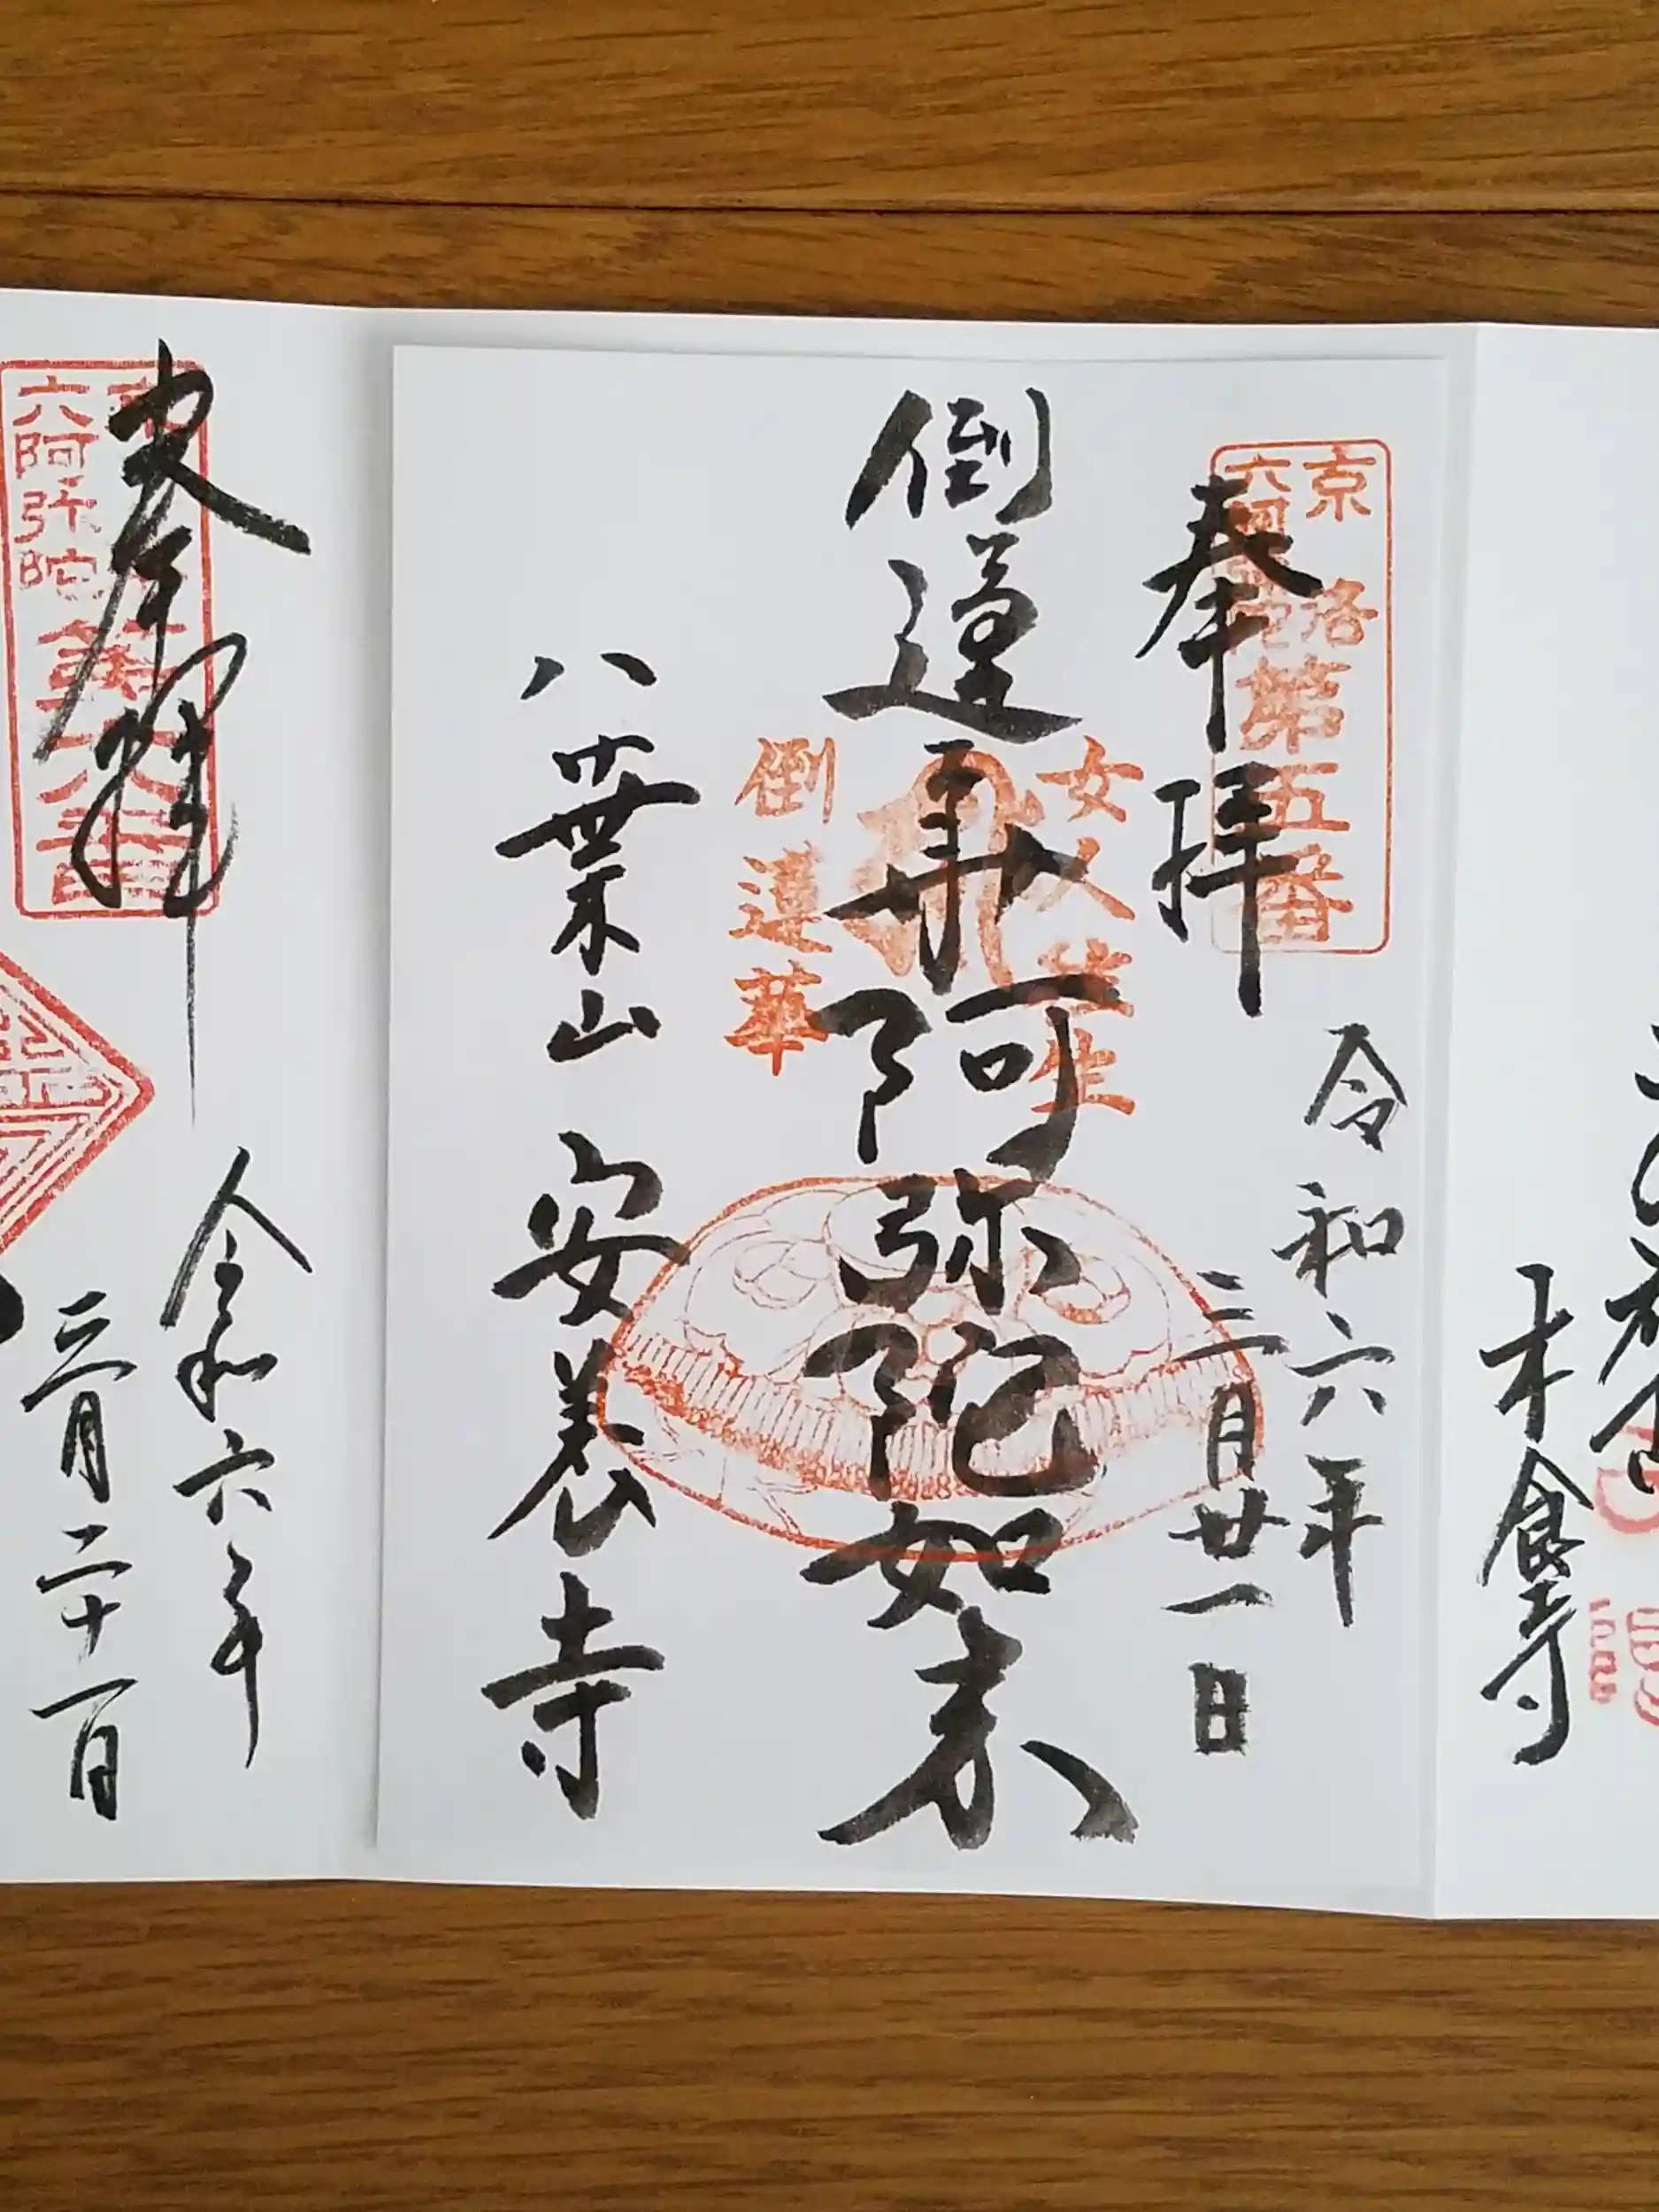 木食寺
京洛
六阿弥陀
第五番
奉拝
令和六年
三月廿一日
女人往生
倒蓮華阿弥陀如来
倒蓮華
八葉山 安養寺
奉拝
六阿弥陀
第六番
令和六年
三月二十一日